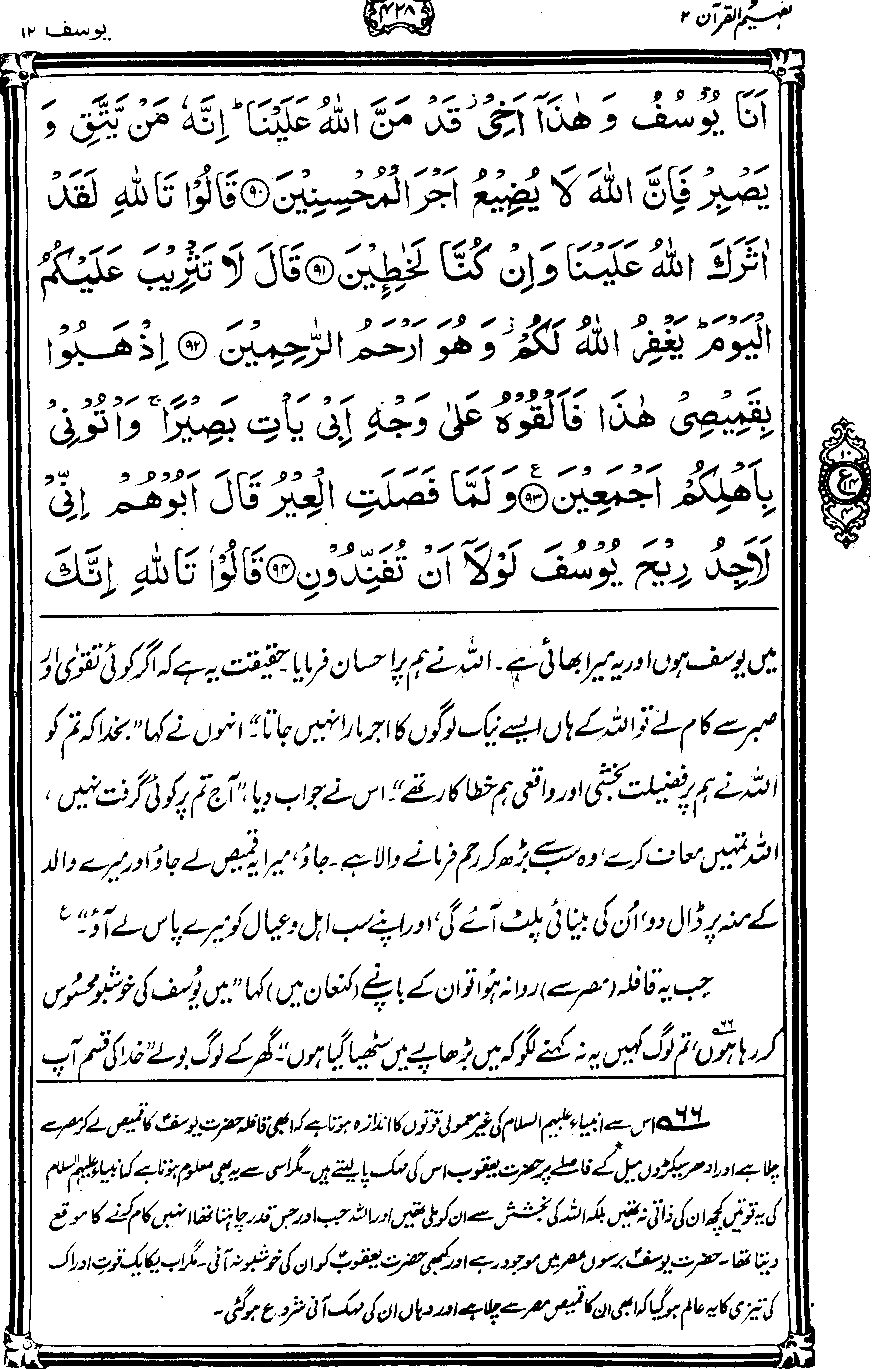 تفہیم القرآن ۲
۴۲۸
یوسف ۱۲
اَنَا یُوْسُفُ وَ هٰذَاۤ اَخِیْ ۫ قَدْ مَنَّ اللّٰهُ عَلَیْنَا ؕ اِنَّهٗ مَنْ یَّتَّقِ وَ
یَصْبِرْ فَاِنَّ اللّٰهَ لَا یُضِیْعُ اَجْرَ الْمُحْسِنِیْنَ ﴿۹۰﴾ قَالُوْا تَاللّٰهِ لَقَدْ
اٰثَرَكَ اللّٰهُ عَلَیْنَا وَ اِنْ كُنَّا لَخٰطِـِٕیْنَ ﴿۹۱﴾ قَالَ لَا تَثْرِیْبَ عَلَیْكُمُ
الْیَوْمَ ؕ یَغْفِرُ اللّٰهُ لَكُمْ ۫ وَ هُوَ اَرْحَمُ الرّٰحِمِیْنَ ﴿۹۲﴾ اِذْهَبُوْا
بِقَمِیْصِیْ هٰذَا فَاَلْقُوْهُ عَلٰی وَجْهِ اَبِیْ یَاْتِ بَصِیْرًا ۚ وَ اْتُوْنِیْ
بِاَهْلِكُمْ اَجْمَعِیْنَ ﴿۹۳﴾ ع وَ لَمَّا فَصَلَتِ الْعِیْرُ قَالَ اَبُوْهُمْ اِنِّیْ
لَاَجِدُ رِیْحَ یُوْسُفَ لَوْلَاۤ اَنْ تُفَنِّدُوْنِ ﴿۹۴﴾ قَالُوْا تَاللّٰهِ اِنَّكَ
۱۰
ع ۱۴
۴
میں یوسف ہوں اور یہ میرا بھائی ہے۔ اللہ نے ہم پر احسان فرمایا۔ حقیقت یہ ہے کہ اگر کوئی تقویٰ اور
صبر سے کام لے تو اللہ کے ہاں ایسے نیک لوگوں کا اجر مارا نہیں جاتا“۔ انہوں نے کہا ”بخدا کہ تم کو
اللہ نے ہم پر فضیلت بخشی اور واقعی ہم خطا کار تھے“۔ اس نے جواب دیا، ”آج تم پر کوئی گرفت نہیں،
اللہ تمہیں معاف کرے، وہ سب سے بڑھ کر رحم فرمانے والا ہے۔ جاؤ، میرا یہ قمیص لے جاؤ اور میرے والد
کے منہ پر ڈال دو، اُن کی بینائی پلٹ آئے گی، اور اپنے سب اہل و عیال کو میرے پاس لے آؤ“۔ ع
جب یہ قافلہ (مصر سے) روانہ ہوا تو ان کے باپ نے (کنعان میں) کہا ”میں یُوسف کی خوشبو محسوس
کر رہا ہوں،۶۶ تم لوگ کہیں یہ نہ کہنے لگو کہ میں بڑھاپے میں سٹھیا گیا ہوں“۔ گھر کے لوگ بولے ”خدا کی قسم آپ
۶۶ اس سے انبیاء علیہم السلام کی غیر معمولی قوتوں کا اندازہ ہوتا ہے کہ ابھی قافلہ حضرت یوسفؑ کا قمیص لے کر مصر سے
چلا ہے اور ادھر سیکڑوں میل کے فاصلے پر حضرت یعقوب اس کی مہک پا لیتے ہیں۔ مگر اسی سے یہ بھی معلوم ہوتا ہے کہ انبیاء علیہم السلام
کی یہ قوتیں کچھ ان کی ذاتی نہ تھیں بلکہ اللہ کی بخشش سے ان کو ملی تھیں اور اللہ جب اور جس قدر چاہتا تھا انہیں کام کرنے کا موقع
دیتا تھا۔ حضرت یوسفؑ برسوں مصر میں موجود رہے اور کبھی حضرت یعقوبؑ کو ان کی خوشبو نہ آئی۔ مگر اب یکایک قوتِ ادراک
کی تیزی کا یہ عالم ہو گیا کہ ابھی ان کا قمیص مصر سے چلا ہے اور وہاں ان کی مہک آنی شروع ہو گئی۔